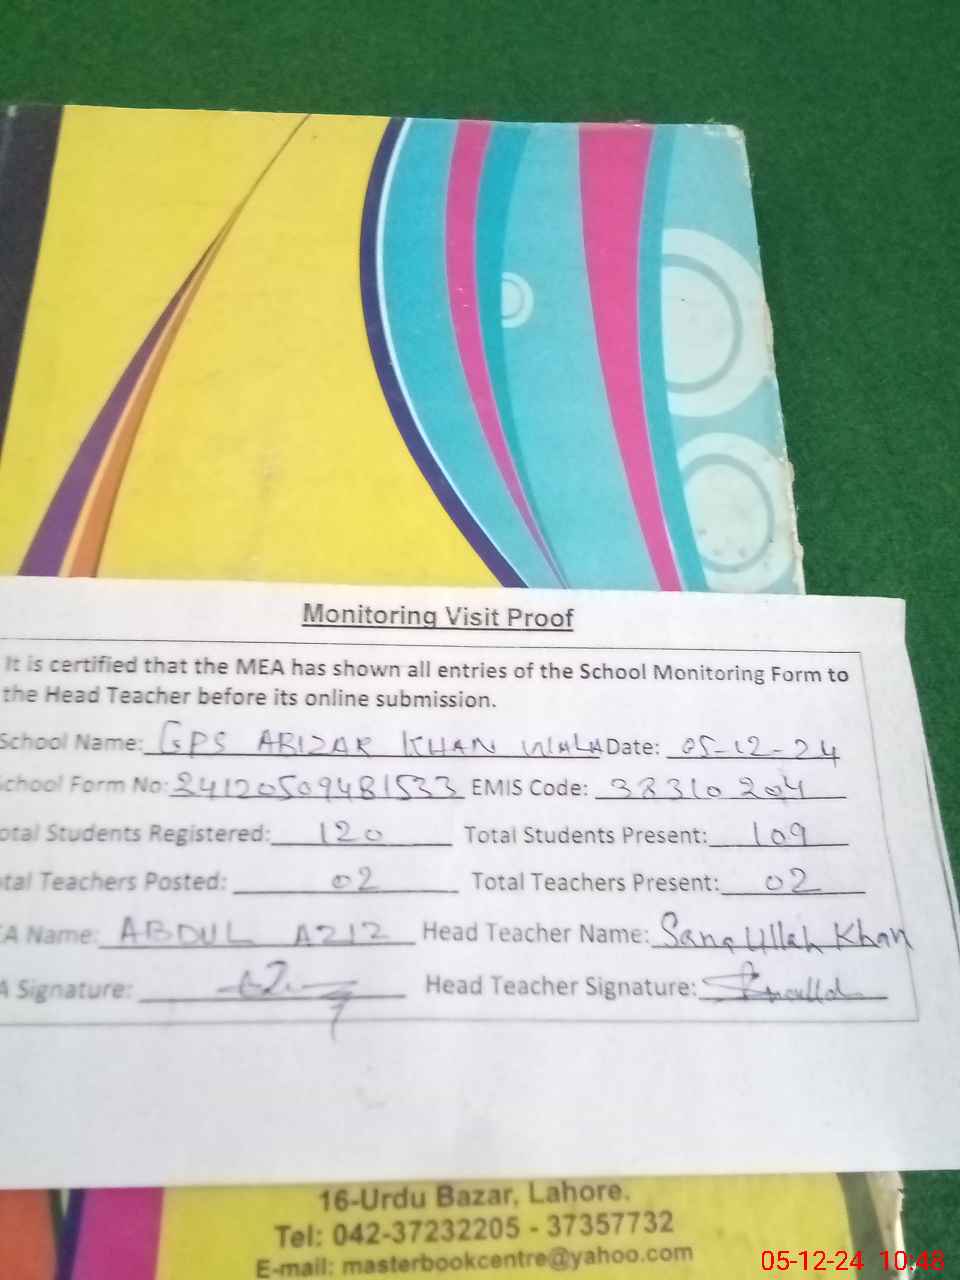 Monitoring Visit Proof
It is certified that the MEA has shown all entries of the School Monitoring Form to
the Head Teacher before its online submission.
School Name: GPS ABIZAR KHAN WALA Date: 05-12-24
chool Form No: 24120509481533 EMIS Code: 38310204
otal Students Registered: 120 Total Students Present: 109
tal Teachers Posted: 02 Total Teachers Present: 02
A Name: ABDUL AZIZ Head Teacher Name: Sana Ullah Khan
A Signature: Head Teacher Signature:
16-Urdu Bazar, Lahore.
Tel: 042-37232205 - 37357732
E-mail: masterbookcentre@yahoo.com
05-12-24 10:48